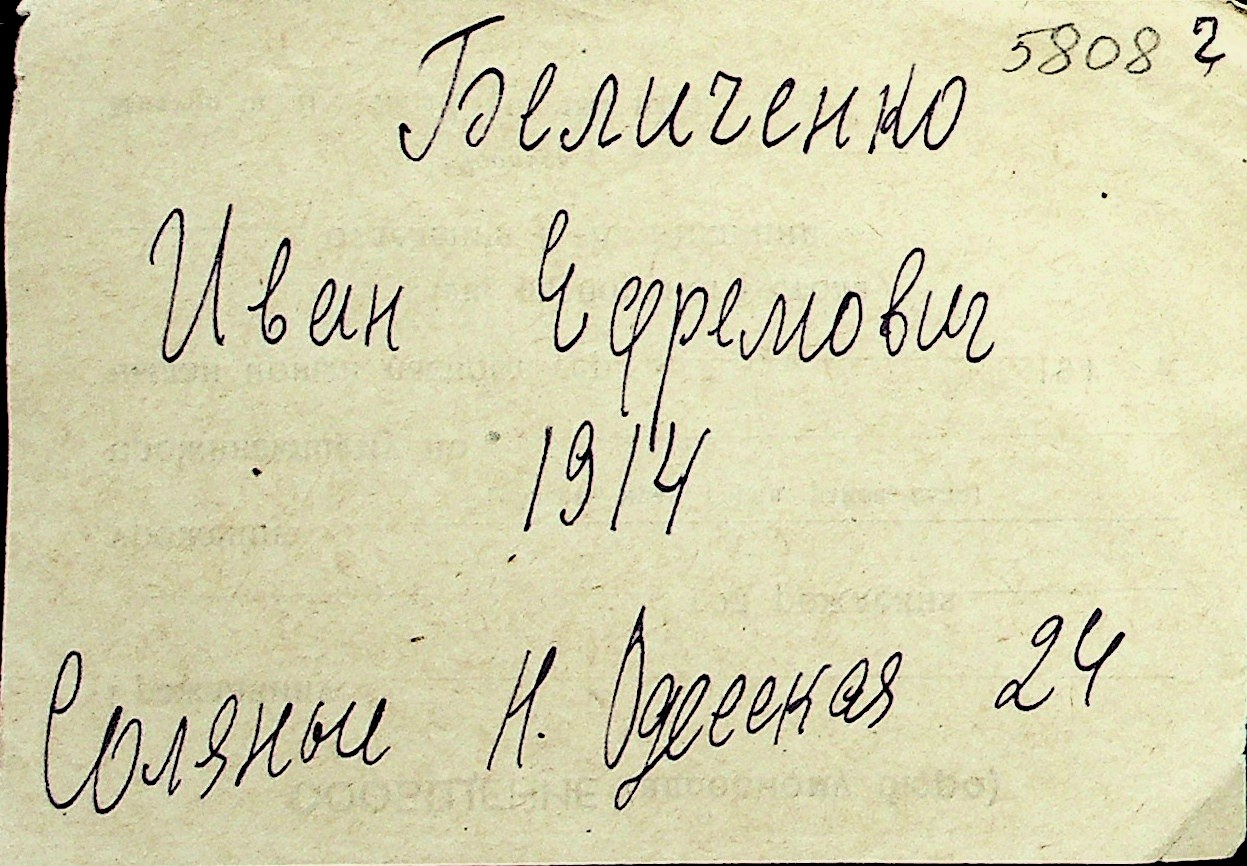 5808 2
Беличенко
Иван Ефремович
1914
Соляные Н. Одесская 24